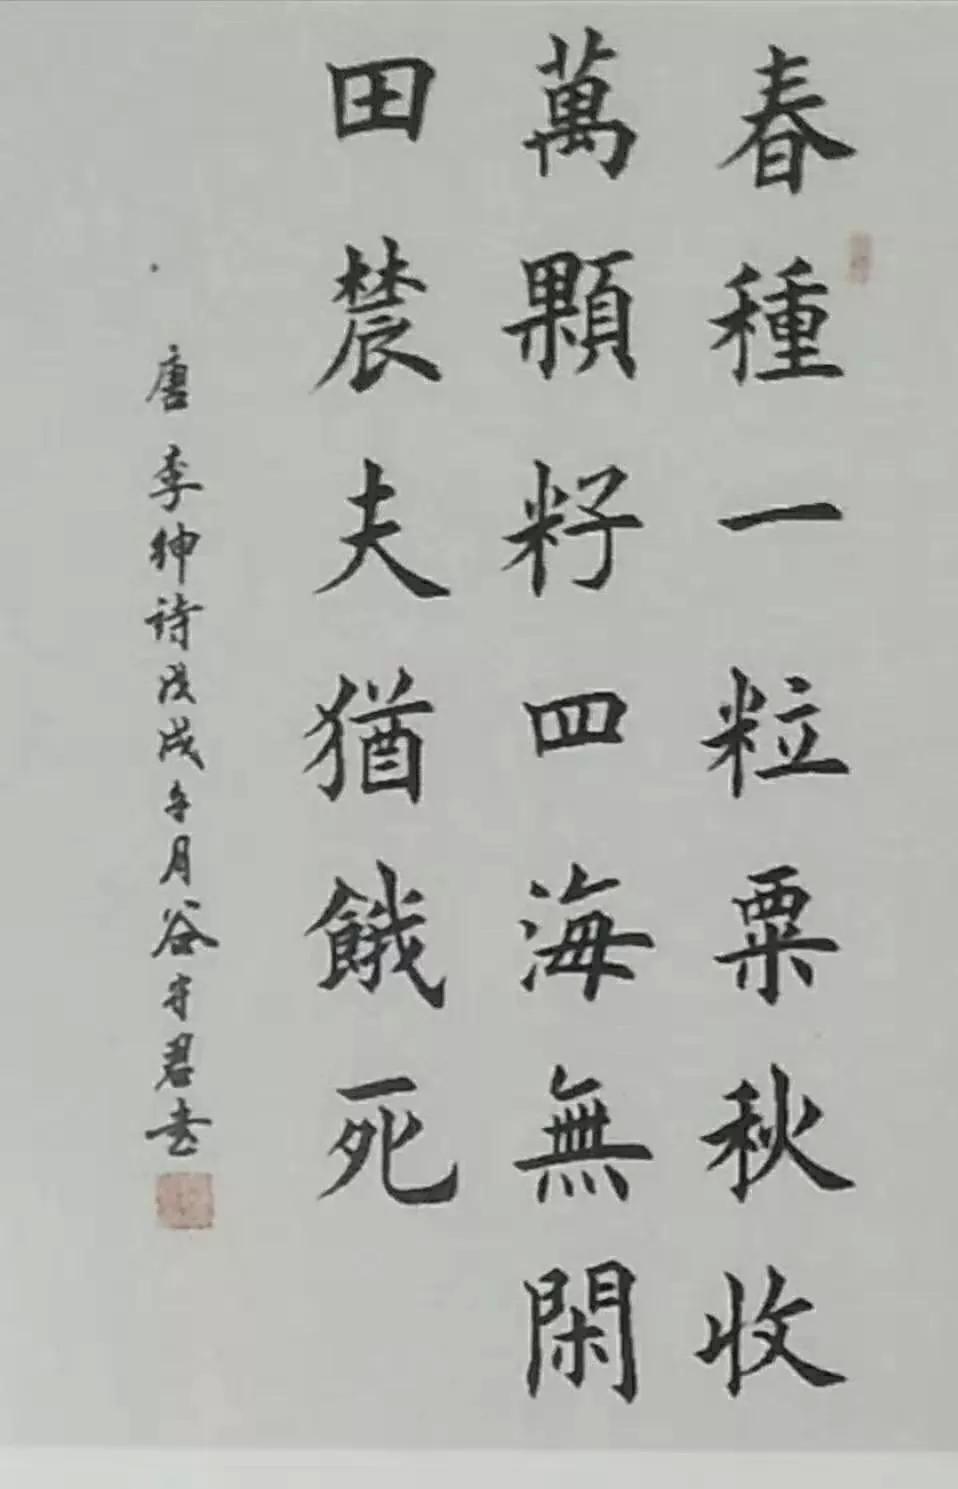 春種一粒粟秋收
萬顆籽四海無閑
田辳夫猶餓死
唐李绅诗戊戌年月谷守君书